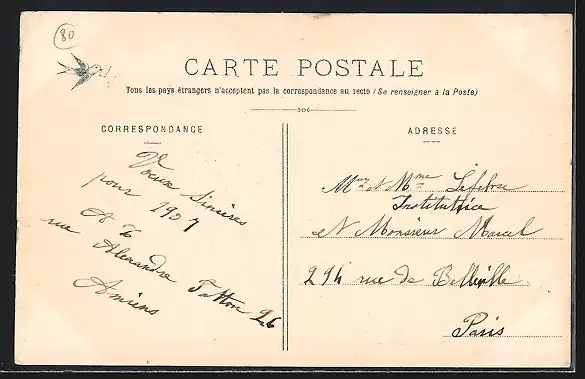 80
CARTE POSTALE
Tous les pays étrangers n'acceptent pas la correspondance au recto (Se renseigner à la Poste)
CORRESPONDANCE
Voeux Sincères
pour 1907
rue Alexandre Fatton 26
Amiens
ADRESSE
et Mme Lefebvre
Institutrice
et Monsieur Marcel
294 rue de Belleville
Paris